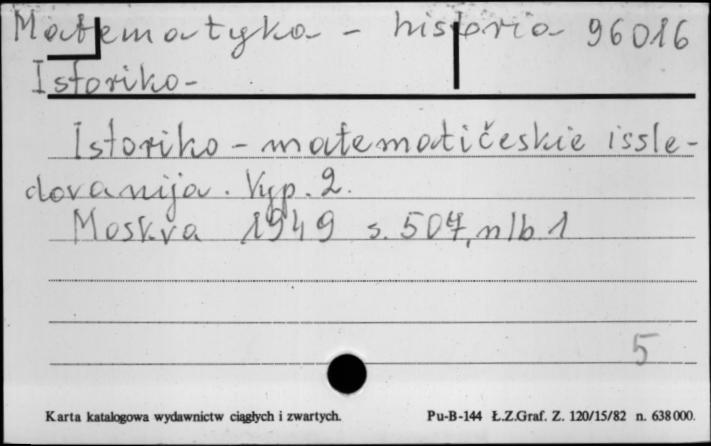 Matematyka - historia 96016
Istoriko-
Istoriko - matematičeskie issle-
dovanija. Vyp. 2.
Moskva 1949 s. 507, nlb 1
5
Karta katalogowa wydawnictw ciągłych i zwartych. Pu-B-144 Ł.Z.Graf. Z. 120/15/82 n. 638 000.